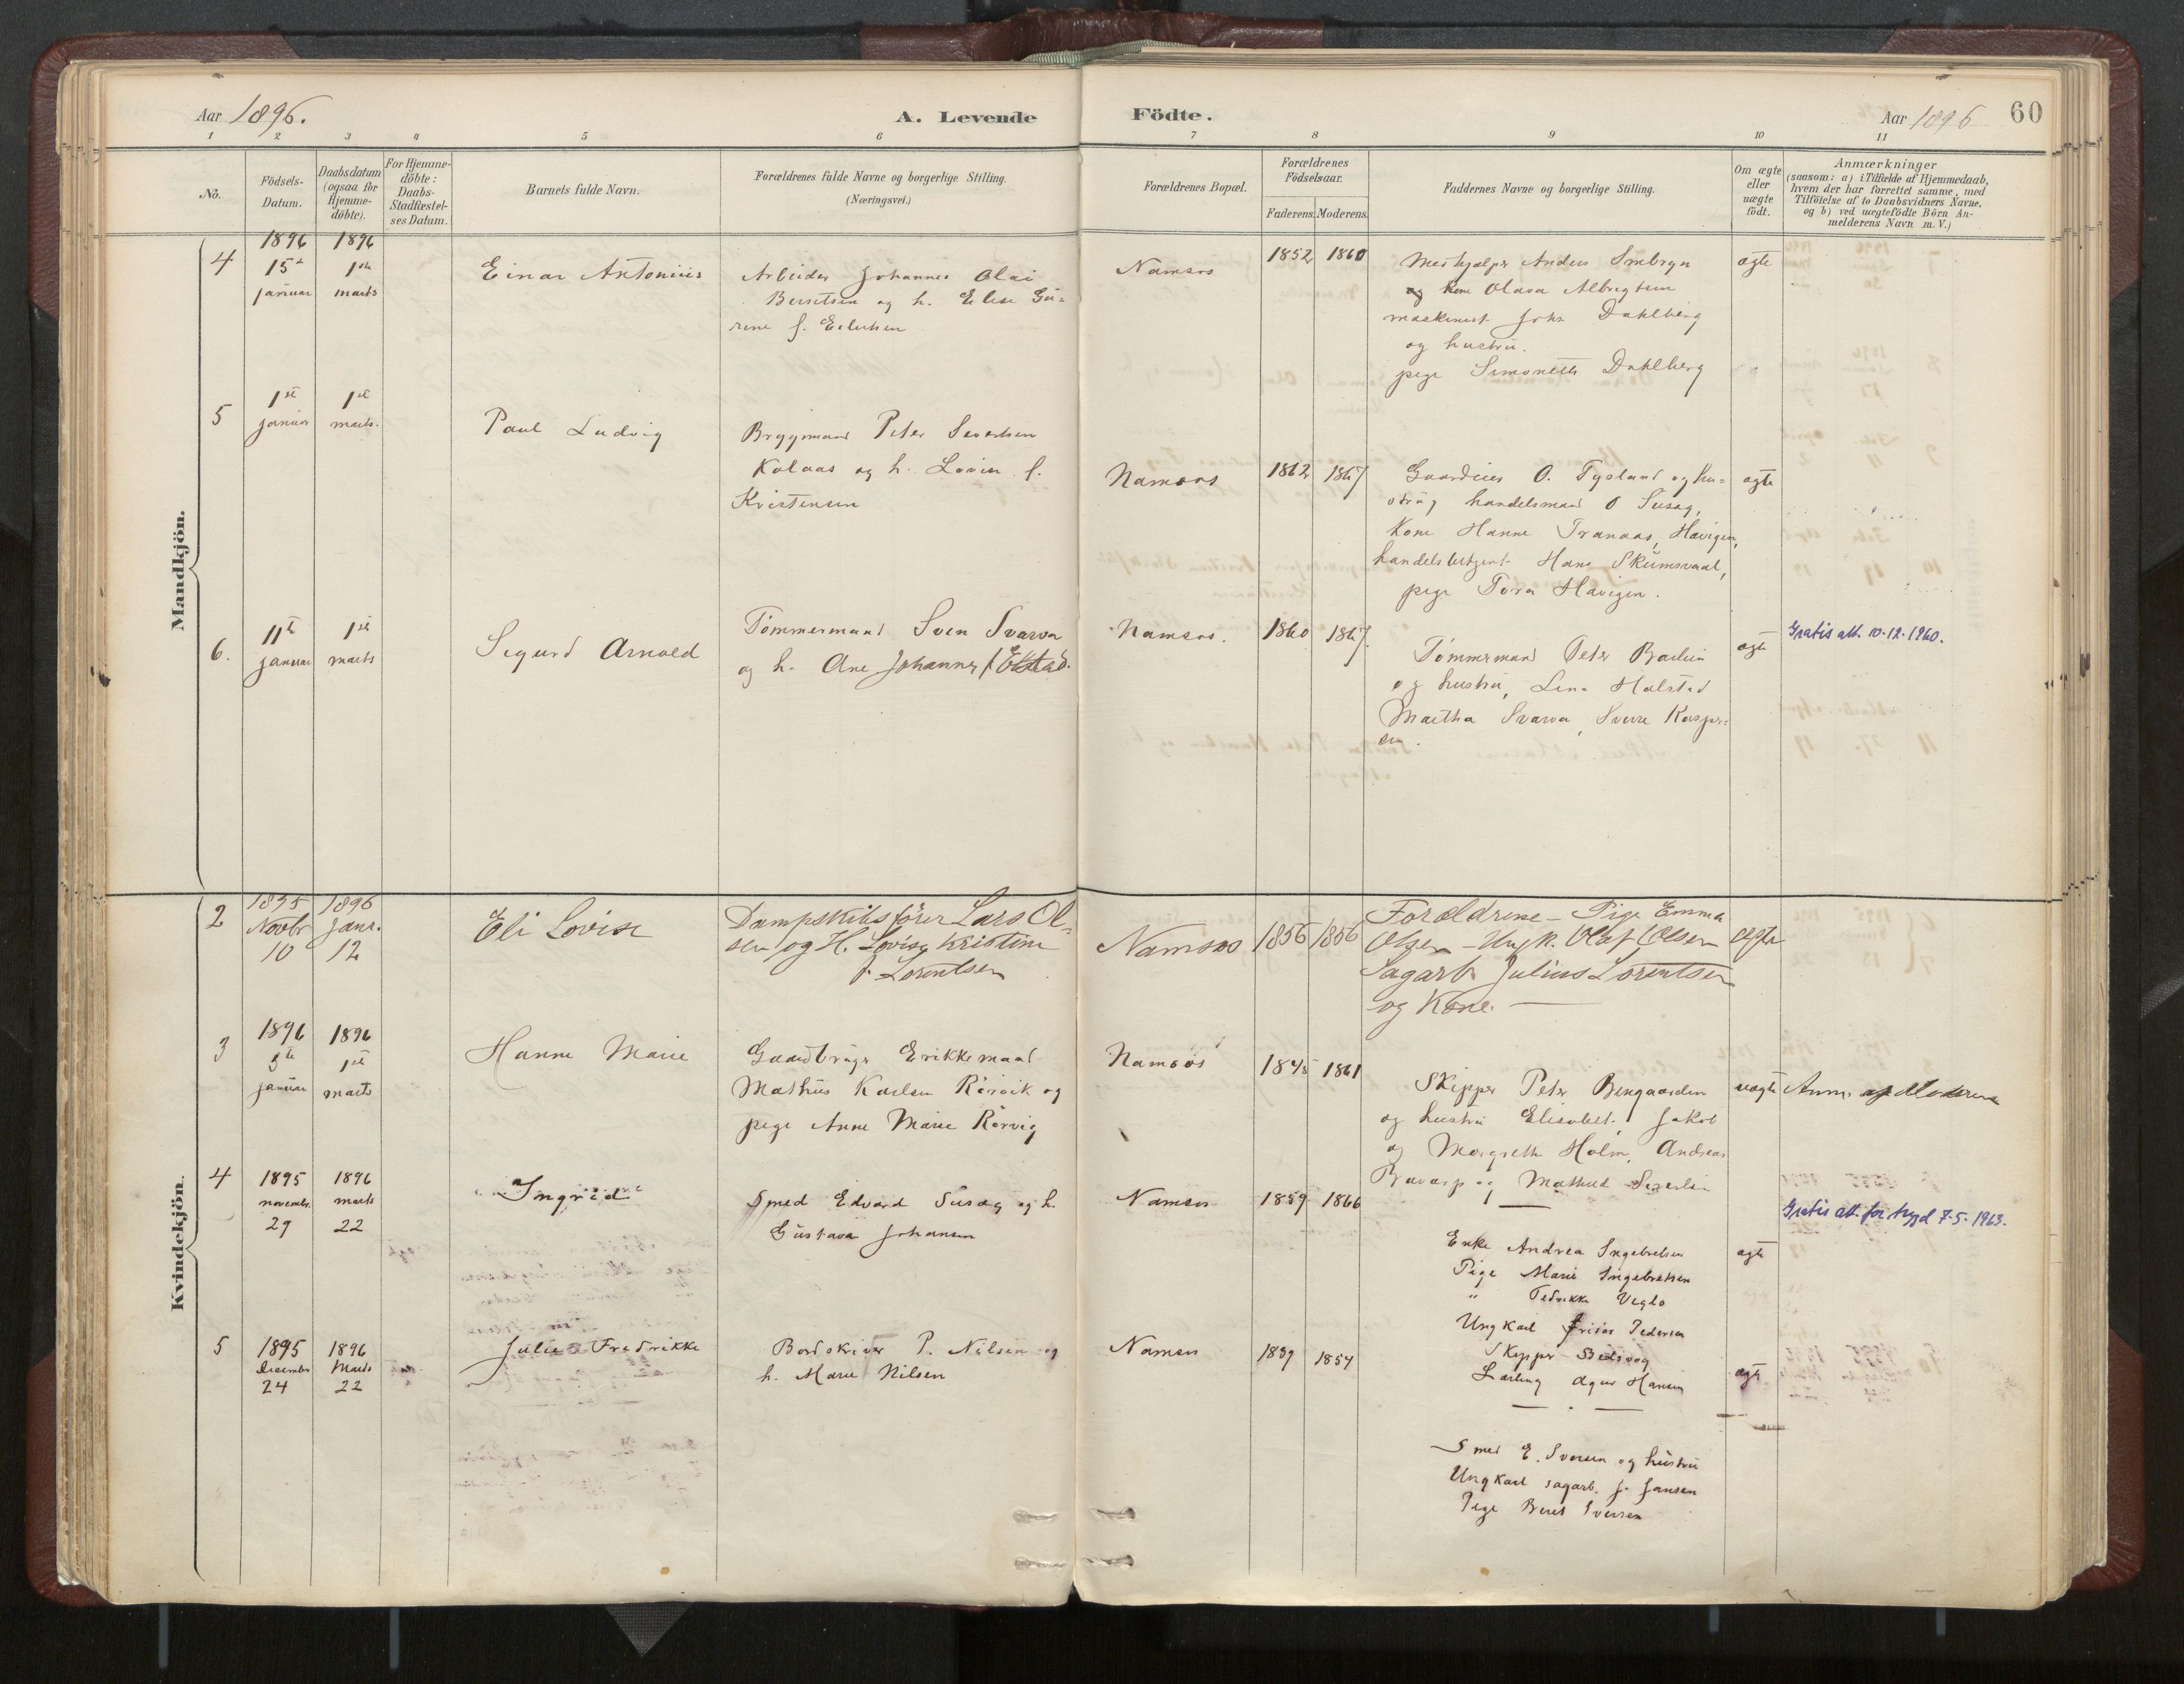 Aar 1896.
A. Levende Födte.
Aar 1896
60
1 2 3 4 5 6 7 8 9 10 11
No.
Födsels-Datum.
Daabsdatum (ogsaa for Hjemme-döbte).
For Hjemme-döbte: Daabs-Stadfæstel-ses Datum.
Barnets fulde Navn.
Forældrenes fulde Navne og borgerlige Stilling.
(Næringsvei.)
Forældrenes Bopæl.
Forældrenes Födselsaar.
Faderens. Moderens.
Faddernes Navne og borgerlige Stilling.
Om ægte eller uægte födt.
Anmærkninger
(saasom: a) i Tilfælde af Hjemmedaab,
hvem der har forrettet samme, med
Tilföielse af to Daabsvidners Navne.
og b) ved uægtefödte Börn An-
melderens Navn m. V.)
Mandkjön.
4
1896
15de
januar
1896
1ste
marts
Einar Antonius
Arbeider Johannes Olai
Berntsen og h. Elise Gu-
rine f. Eilertsen
Namsos
1852 1860
Anders
og kone Olava Albregtsen
maskinist Johs Dahlberg
og hustru.
pige Simonette Dahlberg
ægte
5
1ste
januar
1ste
marts.
Paul Ludvig
Bryggmand Peter Severtsen
Kolaas og h. Lovise f.
Kristensen
Namsos
1862 1867
O. Tysland og hu-
stru, handelsmand O Susag,
Kone Hanne Tranaas, Havigen,
handelsbetjent Hans Skumsvaal,
pige Tora Havigen.
ægte
6.
11te
januar
1ste
marts
Sigurd Arnold
Tömmermand Sven Svarva
og h. Ane Johanna f. Ekstad.
Namsos.
1860 1867.
Tömmermand Peter
og hustru, Lina Halstad
Martha Svarva, Sverre Kasper-
sen.
ægte
Gratis att. 10-12-1960.
Kvindekjön.
2
1895
Novbr
10
1896
Janr.
12
Eli Lovise
Dampskibsförer Lars Ol-
sen og H. Lovise Kristine
f. Lorentsen
Namsos
1856 1856
Forældrene - Pige Emma
Olsen - Ungk. Olaf Olsen
Sagarb. Julius Lorentsen
og Kone.
ægte
3
1896
5te
januar
1896
1ste
marts
Hanne Marie
Gaardbruger Enkkemand
Mathias Karlsen Rörvik og
pige Anne Marie Rörvig
Namsos
1845 1861
Skipper Peter Bengaarden
og hustru Elisabet, Jakob
og Margrethe Holm, Andreas
og Mathud Severtsen
uægte
Anm. af Moderen
4
1895
november
29
1896
marts
22
Ingrid
Smed Edvard Susag og h.
Gustava Johansen
Namsos
1859 1866
Enke Andrea Ingebretsen
Pige Marie Ingebretsen
" Fredrikke Viglo
Ungkarl Pedersen
Skipper
Lærling Hansen
ægte
Gratis att. for trygd 7-5-1963.
5
1895
december
24
1896
Marts
22
Julie Fredrikke
Bordskriver P. Nilsen og
h. Marie Nilsen
Namsos
1839 1854
ægte
Smed E. Iversen og hustru
Ungkarl sagarb. J. Jansen
Pige Beret Iversen